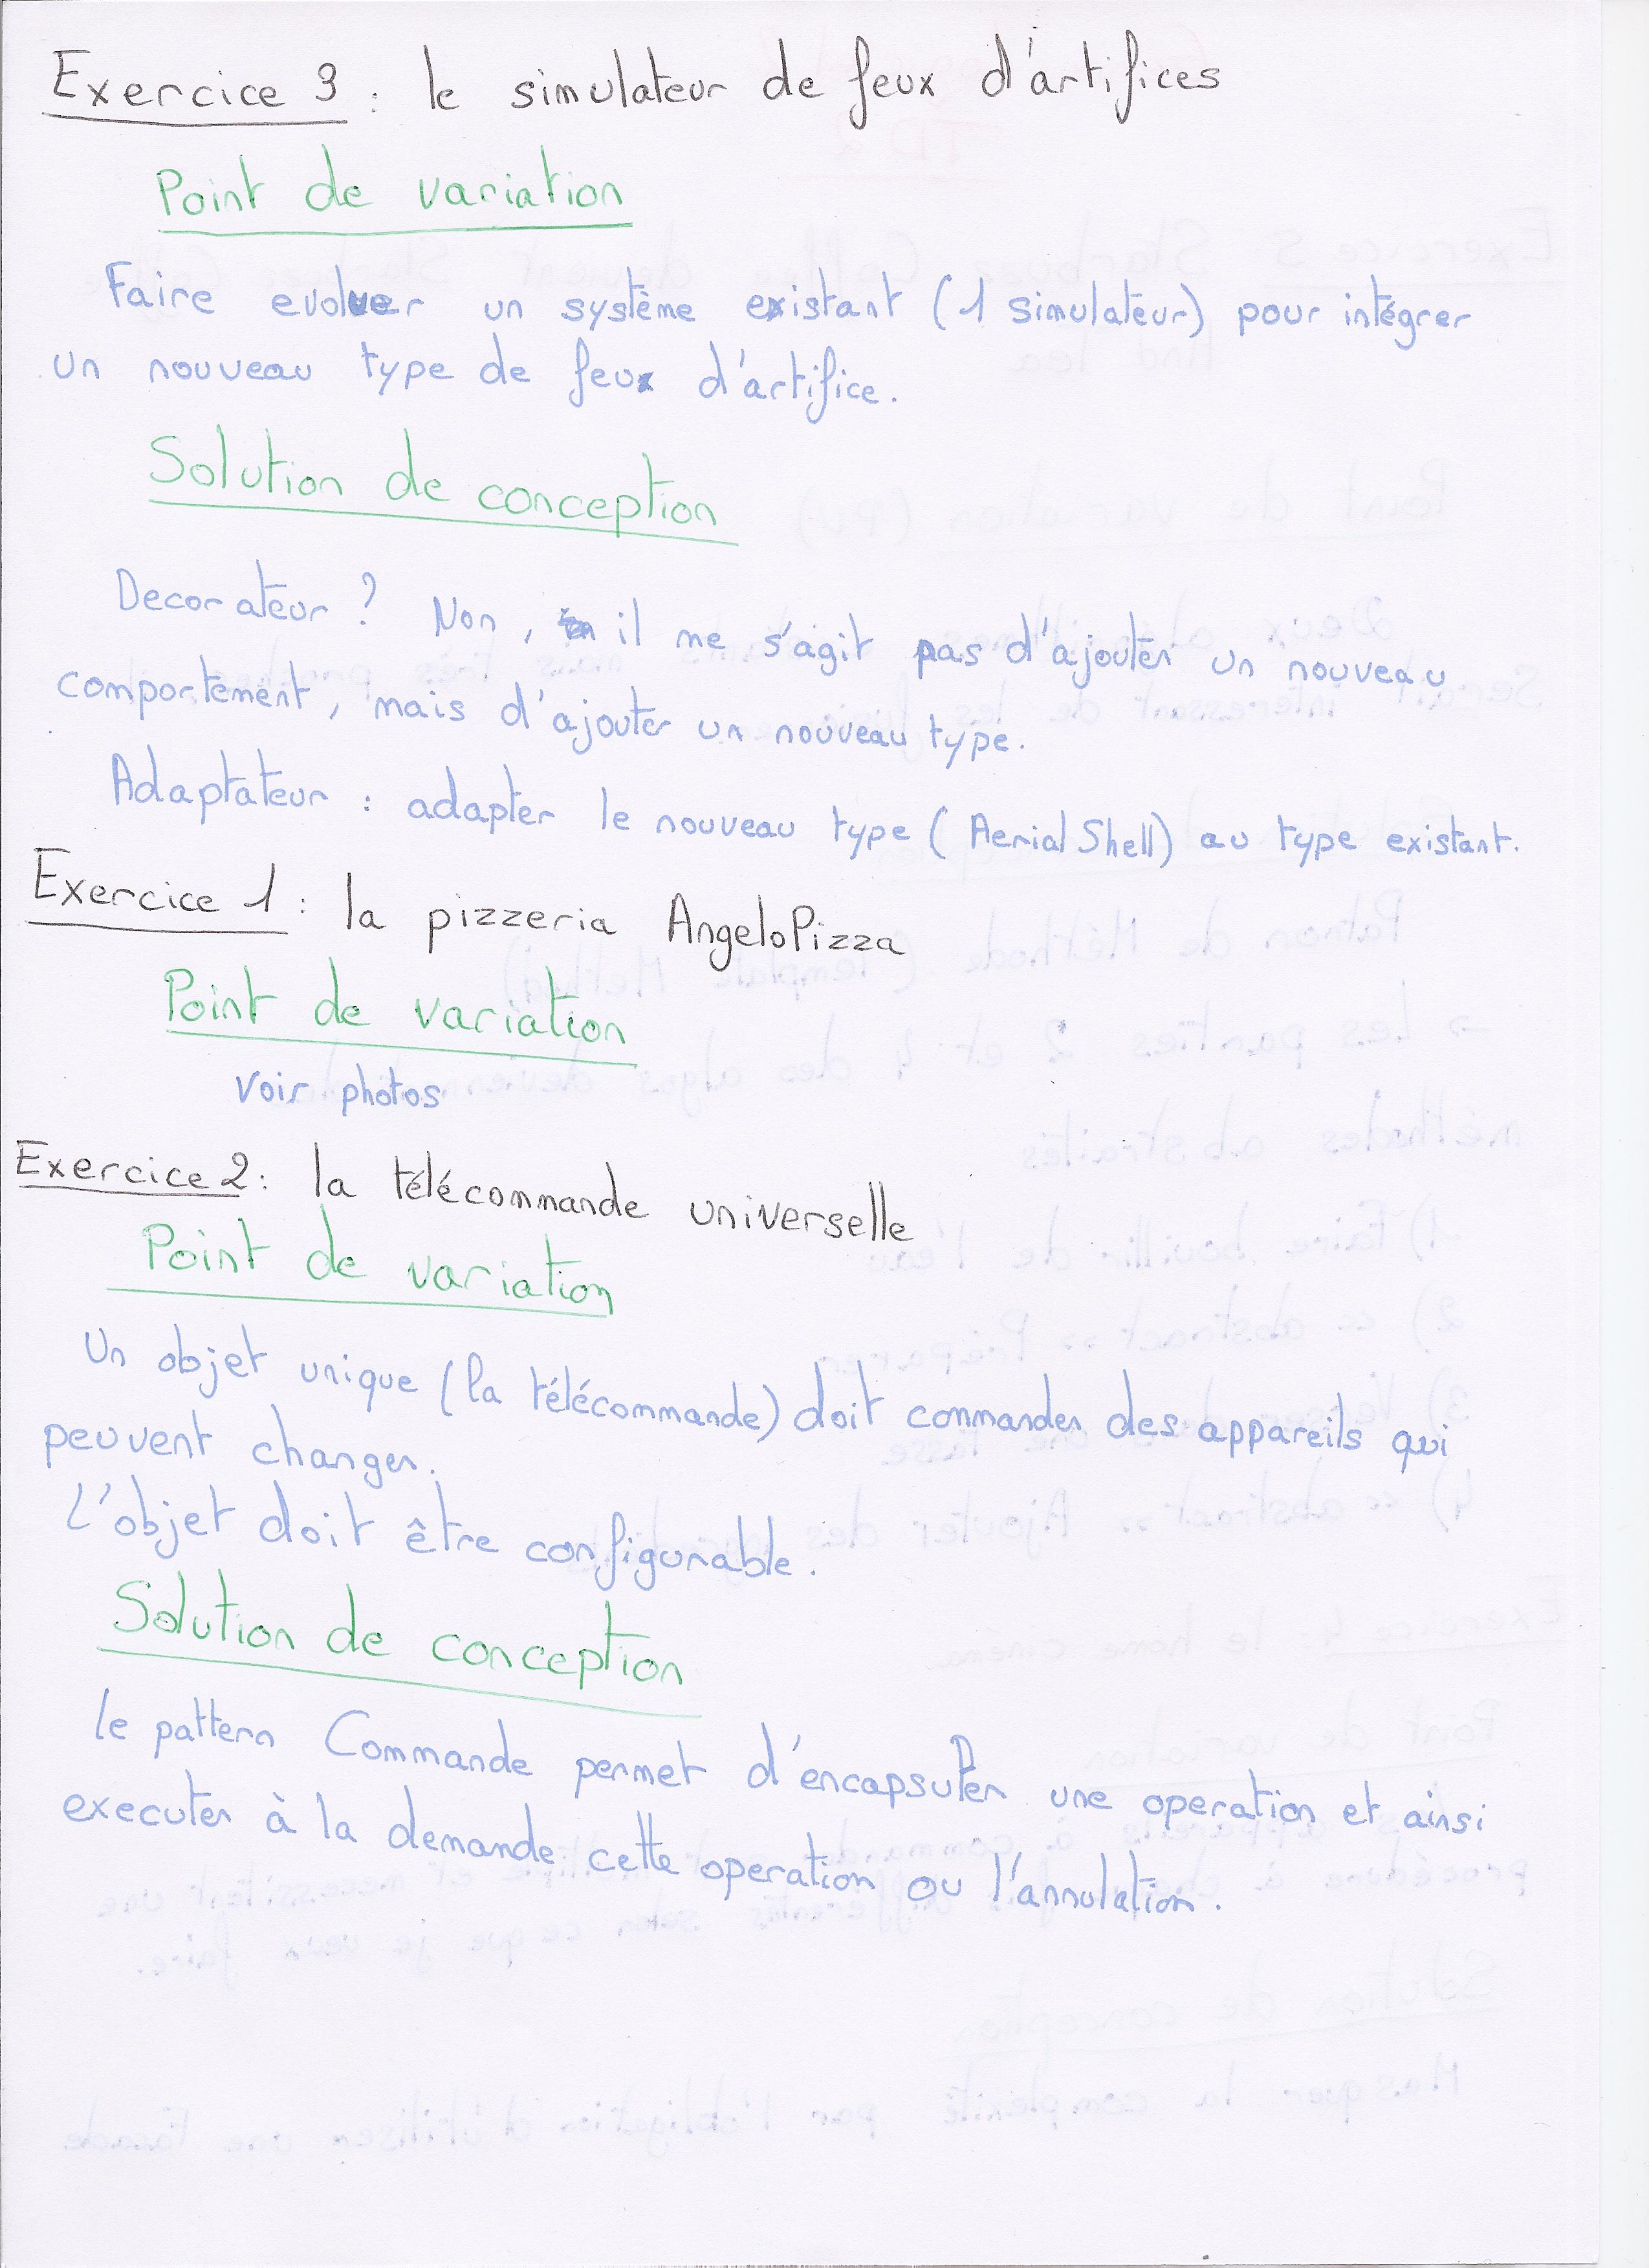 Exercice 3 : le simulateur de feux d'artifices
Point de variation
Faire evoluer un système existant (1 simulateur) pour intégrer
un nouveau type de feux d'artifice.
Solution de conception
Decorateur ? Non, il me s'agit pas d'ajouter un nouveau
comportement, mais d'ajouter un nouveau type.
Adaptateur : adapter le nouveau type (AerialShell) au type existant.
Exercice 1 : la pizzeria AngeloPizza
Point de variation
voir photos
Exercice 2 : la télécommande universelle
Point de variation
Un objet unique (la télécommande) doit commander des appareils qui
peuvent changer.
L'objet doit être configurable.
Solution de conception
le pattern Commande permet d'encapsuler une operation et ainsi
executer à la demande cette operation ou l'annulation.